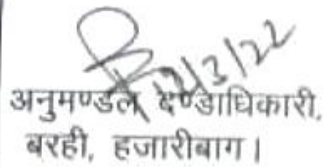 12/3/22
अनुमण्डल दण्डाधिकारी,
बरही, हजारीबाग।